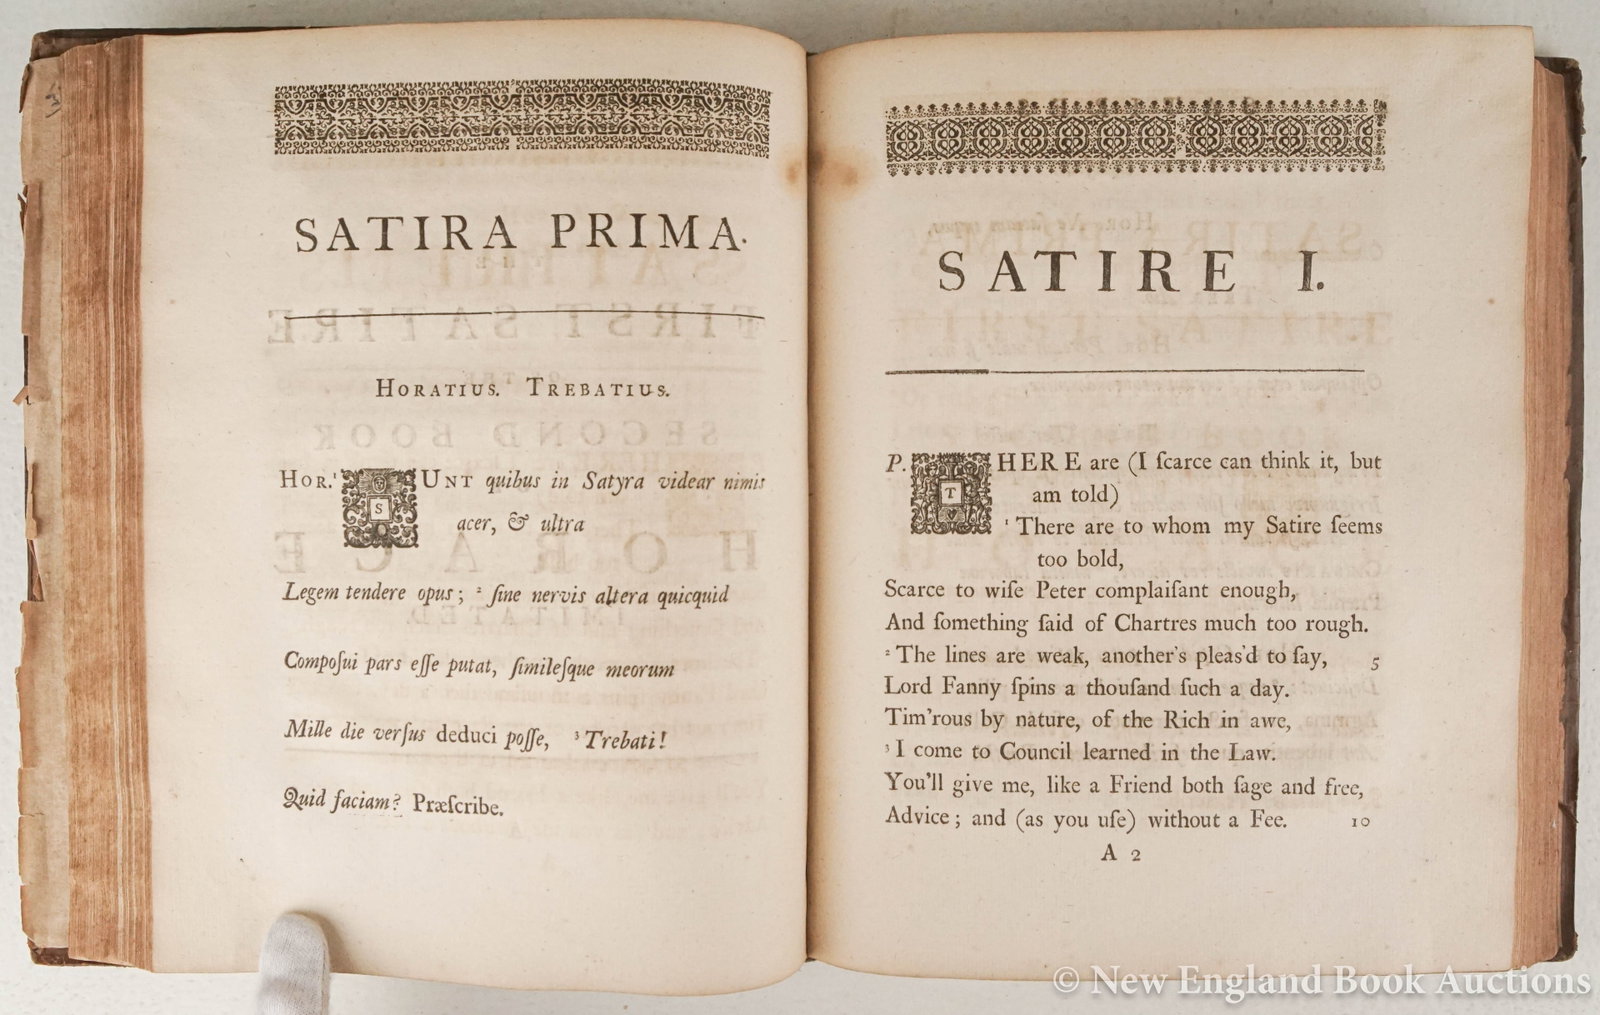 SATIRA PRIMA.
HORATIUS. TREBATIUS.
HOR.¹ SUNT quibus in Satyra videar nimis
acer, & ultra
Legem tendere opus; ² ſine nervis altera quicquid
Compoſui pars eſſe putat, ſimileſque meorum
Mille die verſus deduci poſſe, ³ Trebati!
Quid faciam? Præſcribe.
SATIRE I.
P. THERE are (I ſcarce can think it, but
am told)
¹ There are to whom my Satire ſeems
too bold,
Scarce to wiſe Peter complaiſant enough,
And ſomething ſaid of Chartres much too rough.
² The lines are weak, another's pleas'd to ſay, 5
Lord Fanny ſpins a thouſand ſuch a day.
Tim'rous by nature, of the Rich in awe,
³ I come to Council learned in the Law.
You'll give me, like a Friend both ſage and free,
Advice; and (as you uſe) without a Fee. 10
A 2
© New England Book Auctions